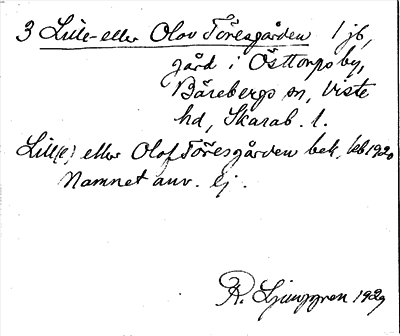 3 Lille- eller Olov Töresgården 1 jb,
gård i Östtorps by,
Bärebergs sn, Viste
hd, Skarab. l.
Lill(e) eller Olof Töresgården bek. kb 1920
Namnet anv. ej.
R. Ljunggren 1929